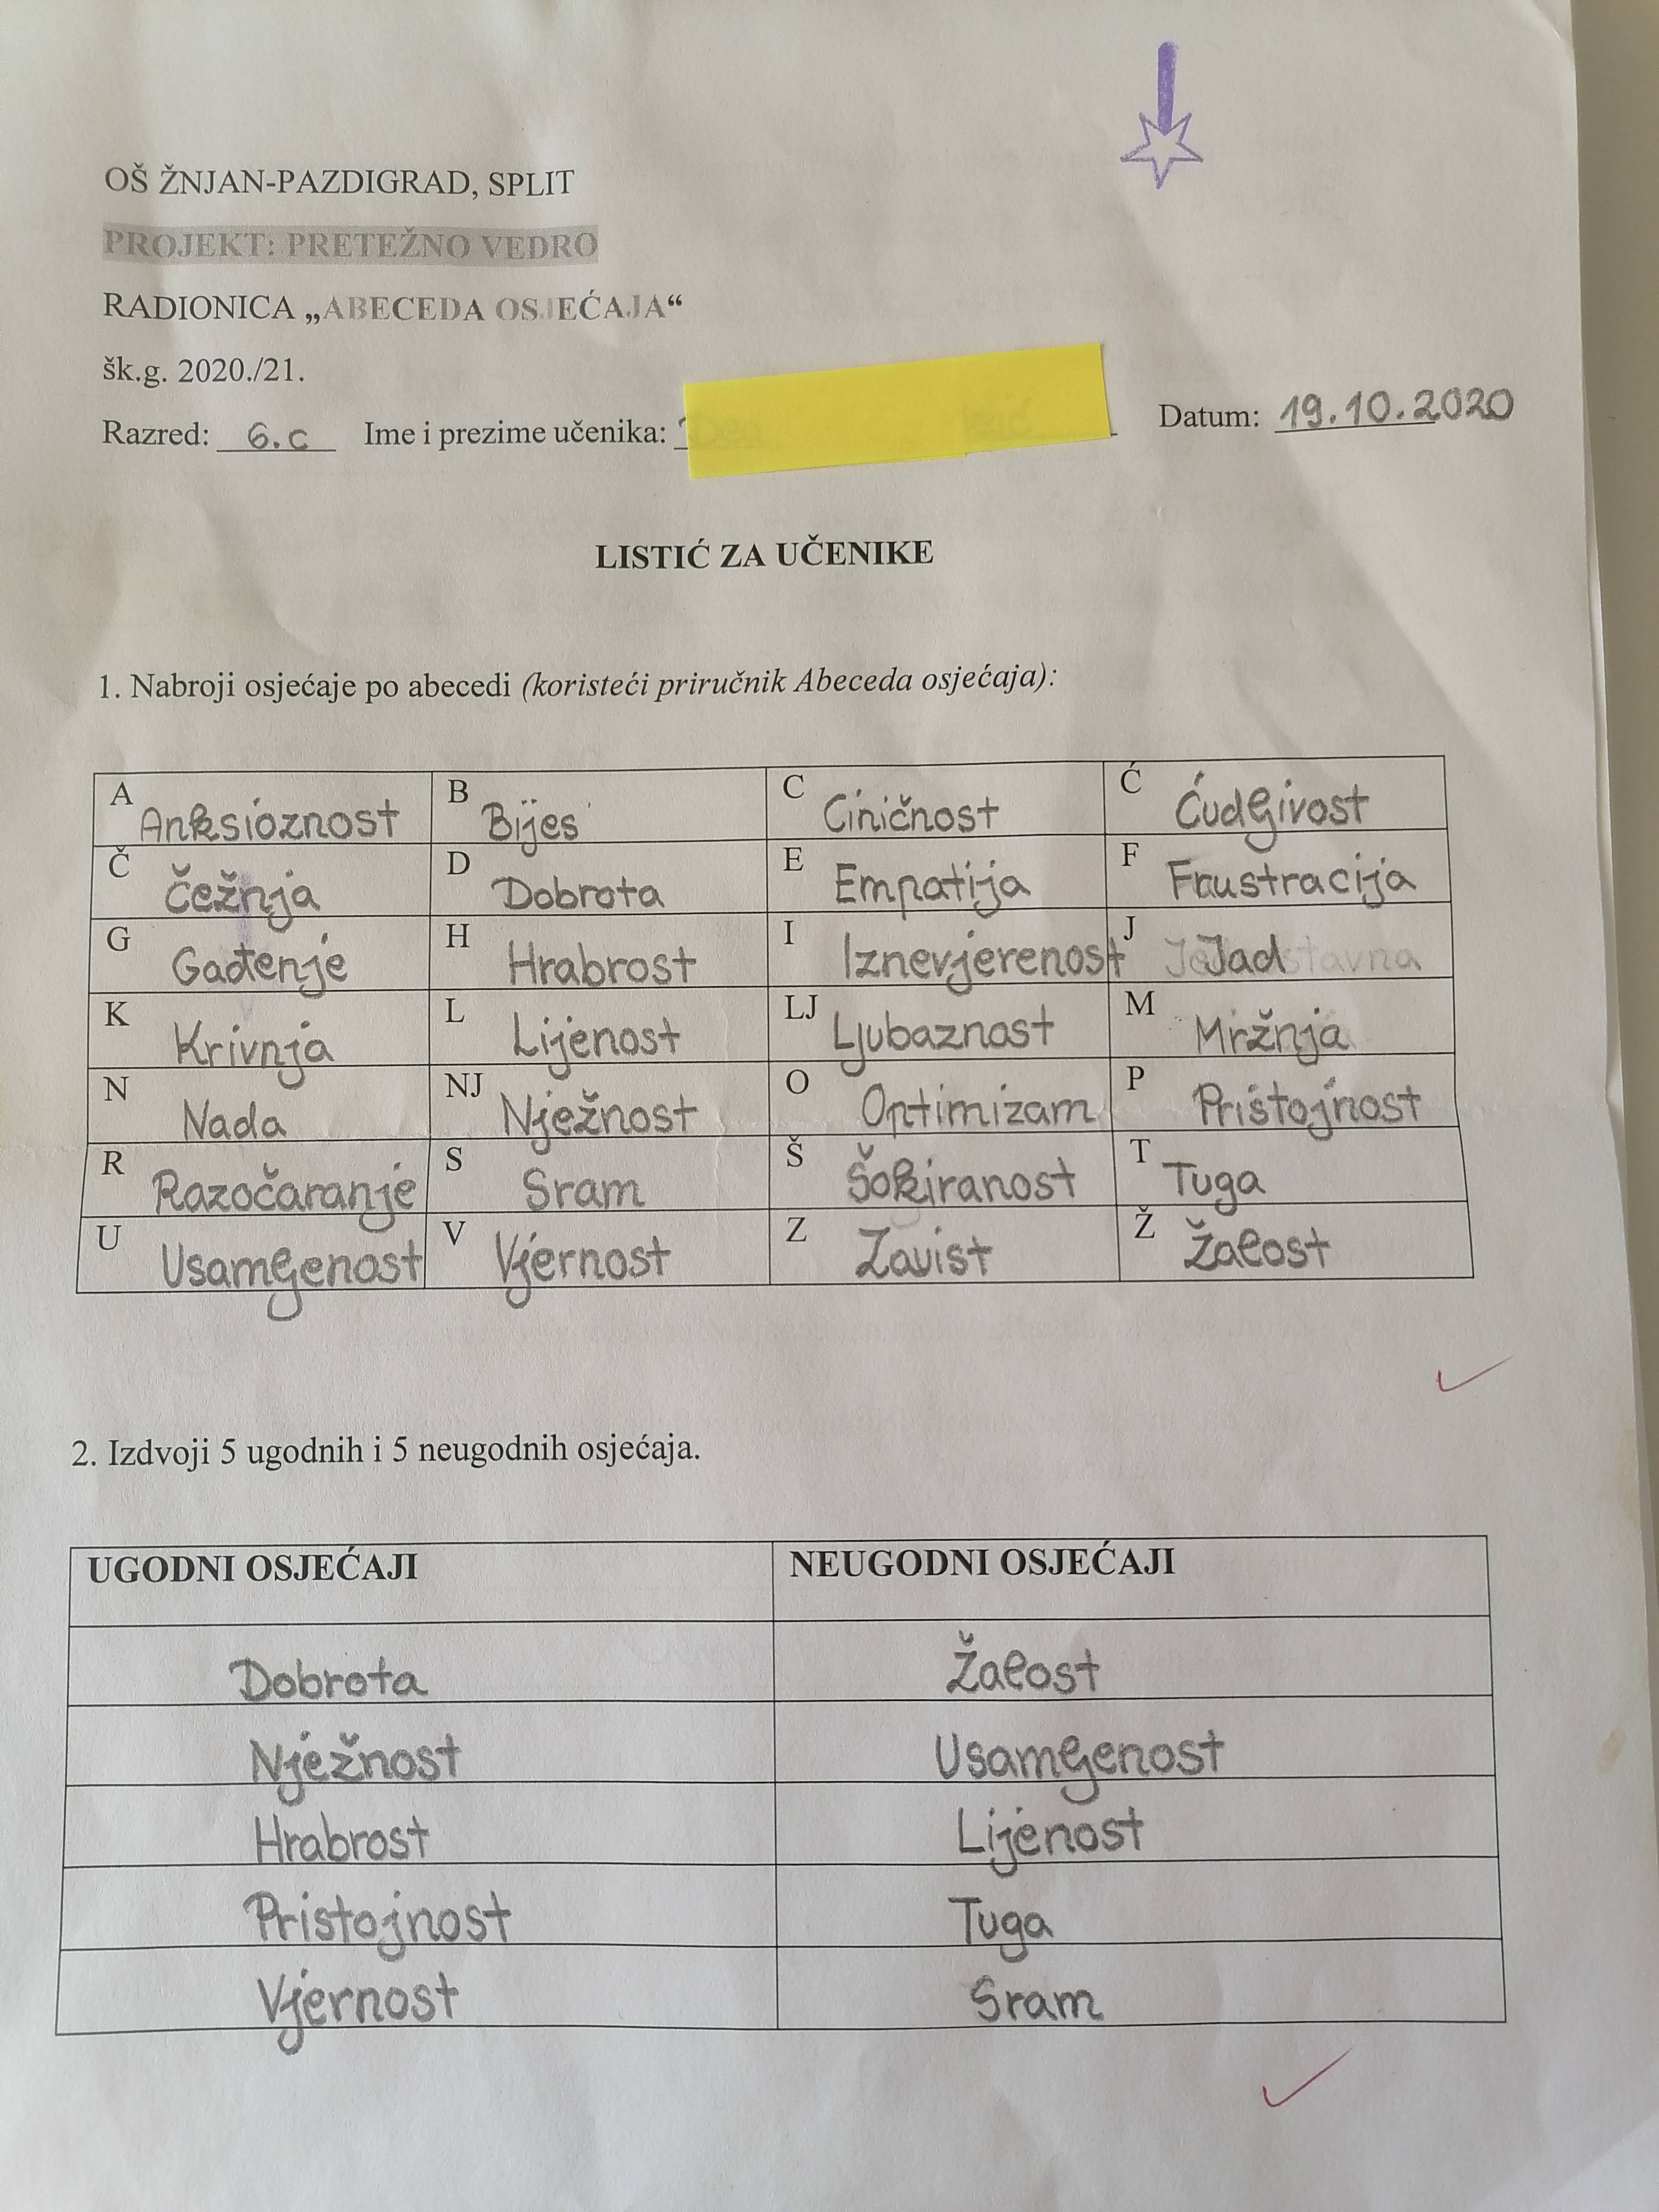 OŠ ŽNJAN-PAZDIGRAD, SPLIT
PROJEKT: PRETEŽNO VEDRO
RADIONICA „ABECEDA OSJEĆAJA“
šk.g. 2020./21.
Razred: 6.c Ime i prezime učenika: Datum: 19.10.2020
LISTIĆ ZA UČENIKE
1. Nabroji osjećaje po abecedi (koristeći priručnik Abeceda osjećaja):
A Anksioznost B Bijes C Ciničnost Ć Ćudljivost
Č Čežnja D Dobrota E Empatija F Fruustracija
G Gađenje H Hrabrost I Iznevjerenost J Jad
K Krivnja L Lijenost LJ Ljubaznost M Mržnja
N Nada NJ Nježnost O Optimizam P Pristojnost
R Razočaranje S Sram Š Šokiranost T Tuga
U Usamljenost V Vjernost Z Zavist Ž Žalost
2. Izdvoji 5 ugodnih i 5 neugodnih osjećaja.
UGODNI OSJEĆAJI NEUGODNI OSJEĆAJI
Dobrota Žalost
Nježnost Usamljenost
Hrabrost Lijenost
Pristojnost Tuga
Vjernost Sram